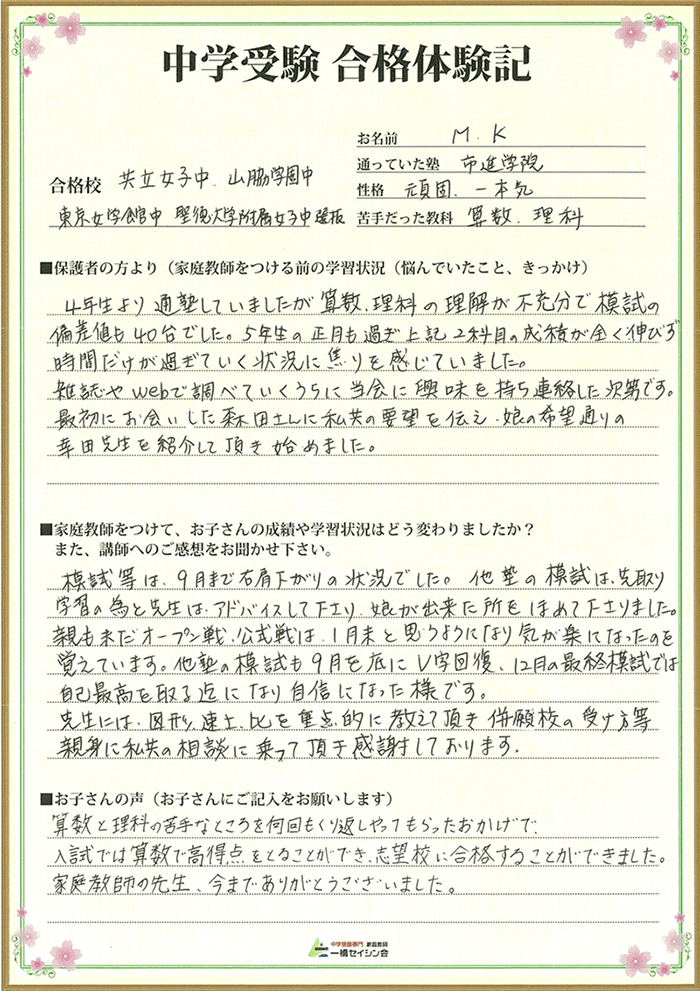 中学受験 合格体験記
お名前 M.K
通っていた塾 市進学院
合格校 共立女子中、山脇学園中
性格 頑固、一本気
東京女学館中 聖徳大学附属女子中選抜 苦手だった教科 算数、理科
■保護者の方より（家庭教師をつける前の学習状況（悩んでいたこと、きっかけ）
4年生より通塾していましたが算数、理科の理解が不充分で模試の
偏差値も40台でした。5年生の正月も過ぎ上記2科目の成績が全く伸びず
時間だけが過ぎていく状況に焦りを感じていました。
雑誌やwebで調べていくうちに当会に興味を持ち連絡した次第です。
最初にお会いした森田さんに私共の要望を伝え、娘の希望通りの
幸田先生を紹介して頂き始めました。
■家庭教師をつけて、お子さんの成績や学習状況はどう変わりましたか？
また、講師へのご感想をお聞かせ下さい。
模試等は、9月まで右肩下がりの状況でした。他塾の模試は、先取り
学習の為と先生は、アドバイスして下さり、娘が出来た所をほめて下さりました。
親もまだオープン戦、公式戦は、1月末と思うようになり気が楽になったのを
覚えています。他塾の模試も9月を底にV字回復、12月の最終模試では
自己最高を取る迄になり自信になった様です。
先生には、図形、速土、比を重点的に教えて頂き併願校の受け方等
親身に私共の相談に乗って頂き感謝しております。
■お子さんの声（お子さんにご記入をお願いします）
算数と理科の苦手なところを何回もくり返しやってもらったおかげで、
入試では算数で高得点をとることができ、志望校に合格することができました。
家庭教師の先生、今までありがとうございました。
中学受験専門 家庭教師
一橋セイシン会